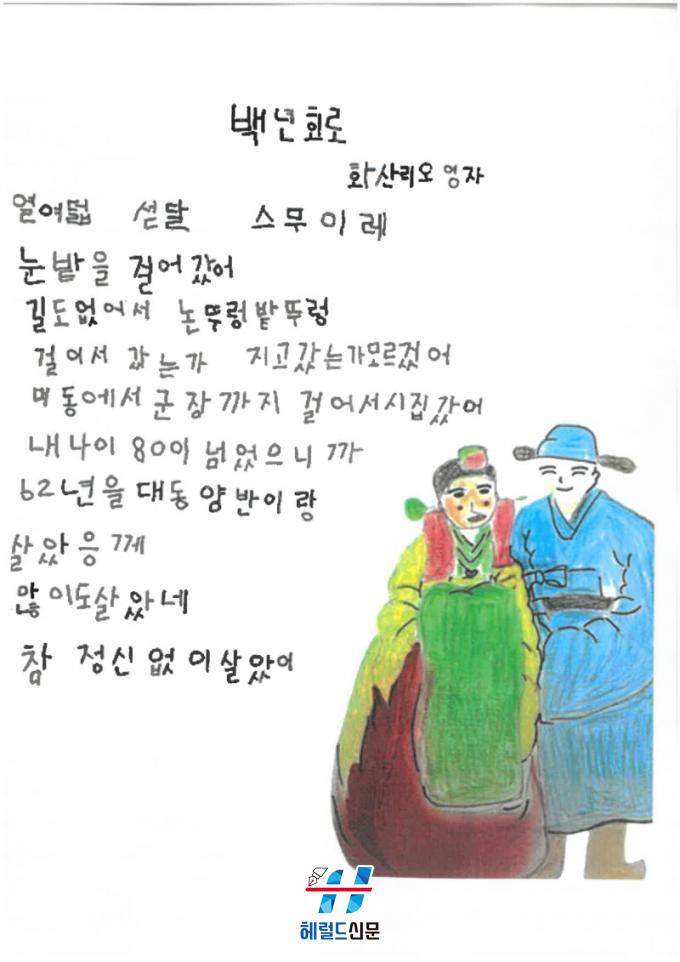 백년회로
화산리오영자
열여덟 섣달 스무이레
눈밭을 걸어갔어
길도없어서 논뚜렁밭뚜렁
걸어서 갔는가 지고갔는가모르겄어
먀동에서 군장까지 걸어서시집갔어
내나이 80이 넘었으니까
62년을 대동양반이랑
살았응께
많이도살았네
참 정신없이살았어
헤럴드신문